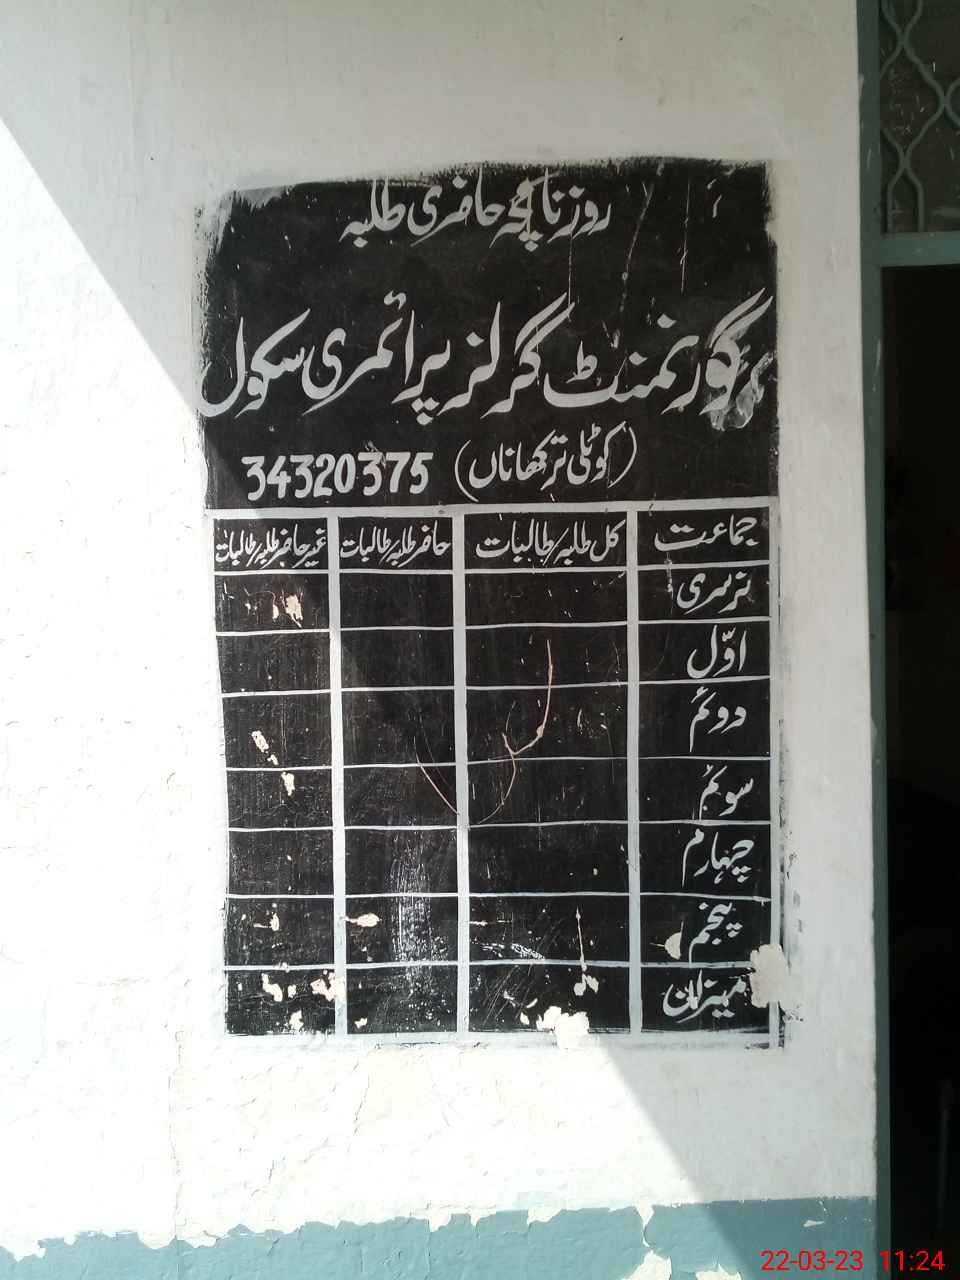 روزنامچہ حاضری طلبہ
گورنمنٹ گرلز پرائمری سکول
(کوٹلی ترکھاناں) 34320375
جماعت کل طلبہ/طالبات حاضر طلبہ/طالبات غیر حاضر طلبہ/طالبات
نرسری
اوّل
دوئم
سوئم
چہارم
پنجم
میزان
22-03-23 11:24